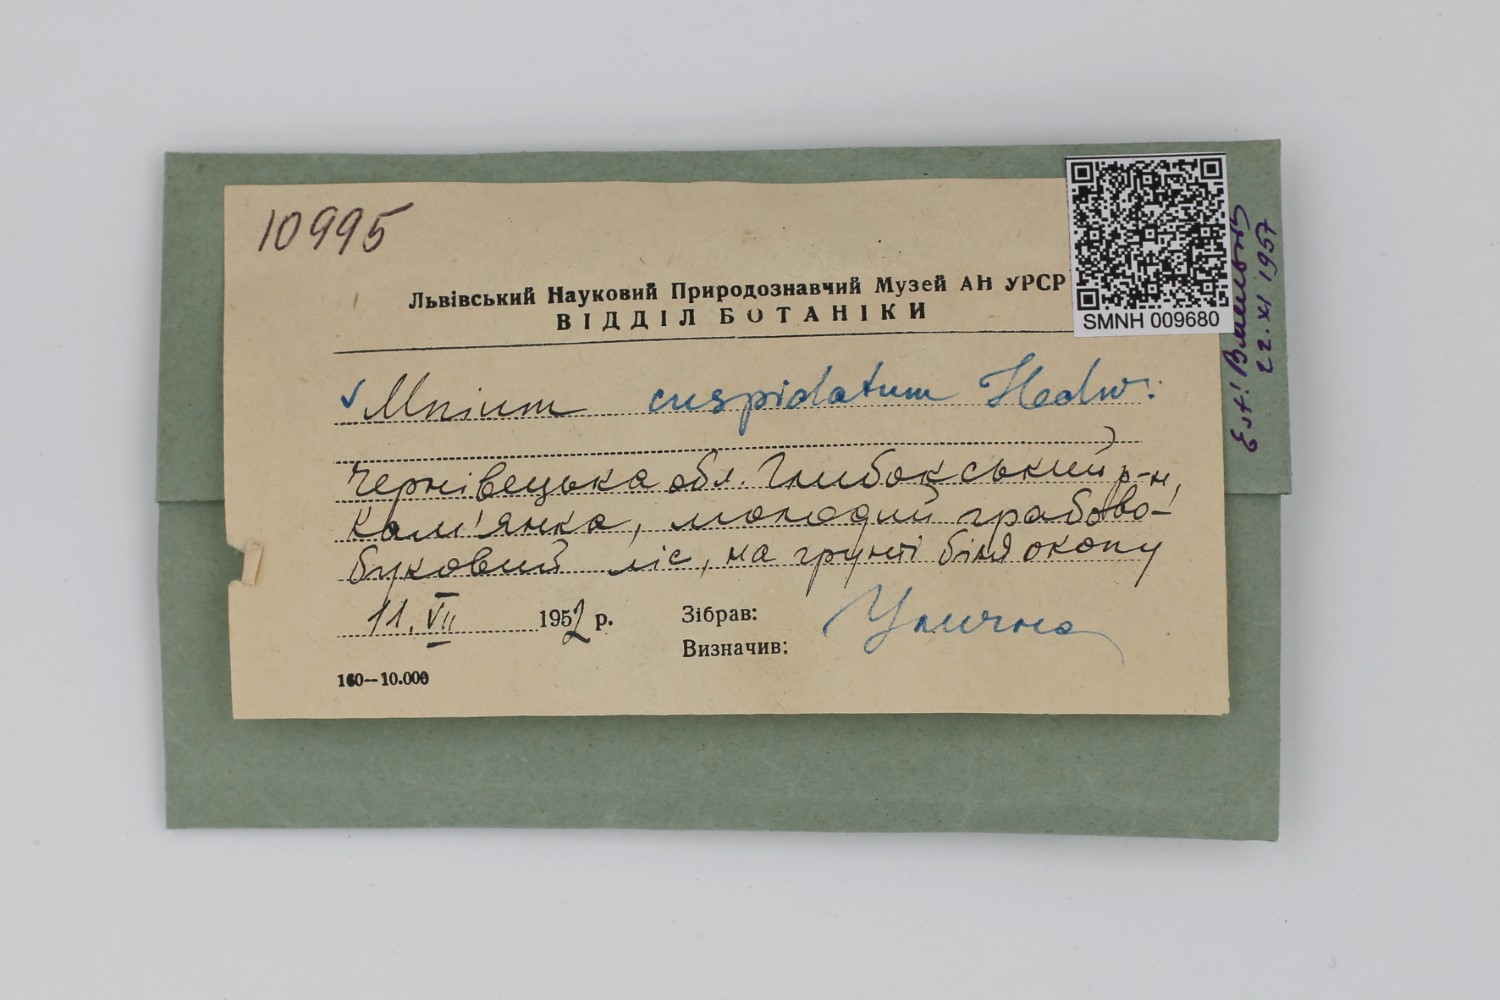 10995
Львівський Науковий Природознавчий Музей АН УРСР
ВІДДІЛ БОТАНІКИ
SMNH 009680
✓ Mnium cuspidatum Hedw.
Чернівецька обл. Глибокський р-н,
Кам'янка, молодий грабово-
буковий ліс, на грунті біля окопу
11. VII 1952 р.
Зібрав: Улична
Визначив:
160—10.000
Est!
22.XI 1957